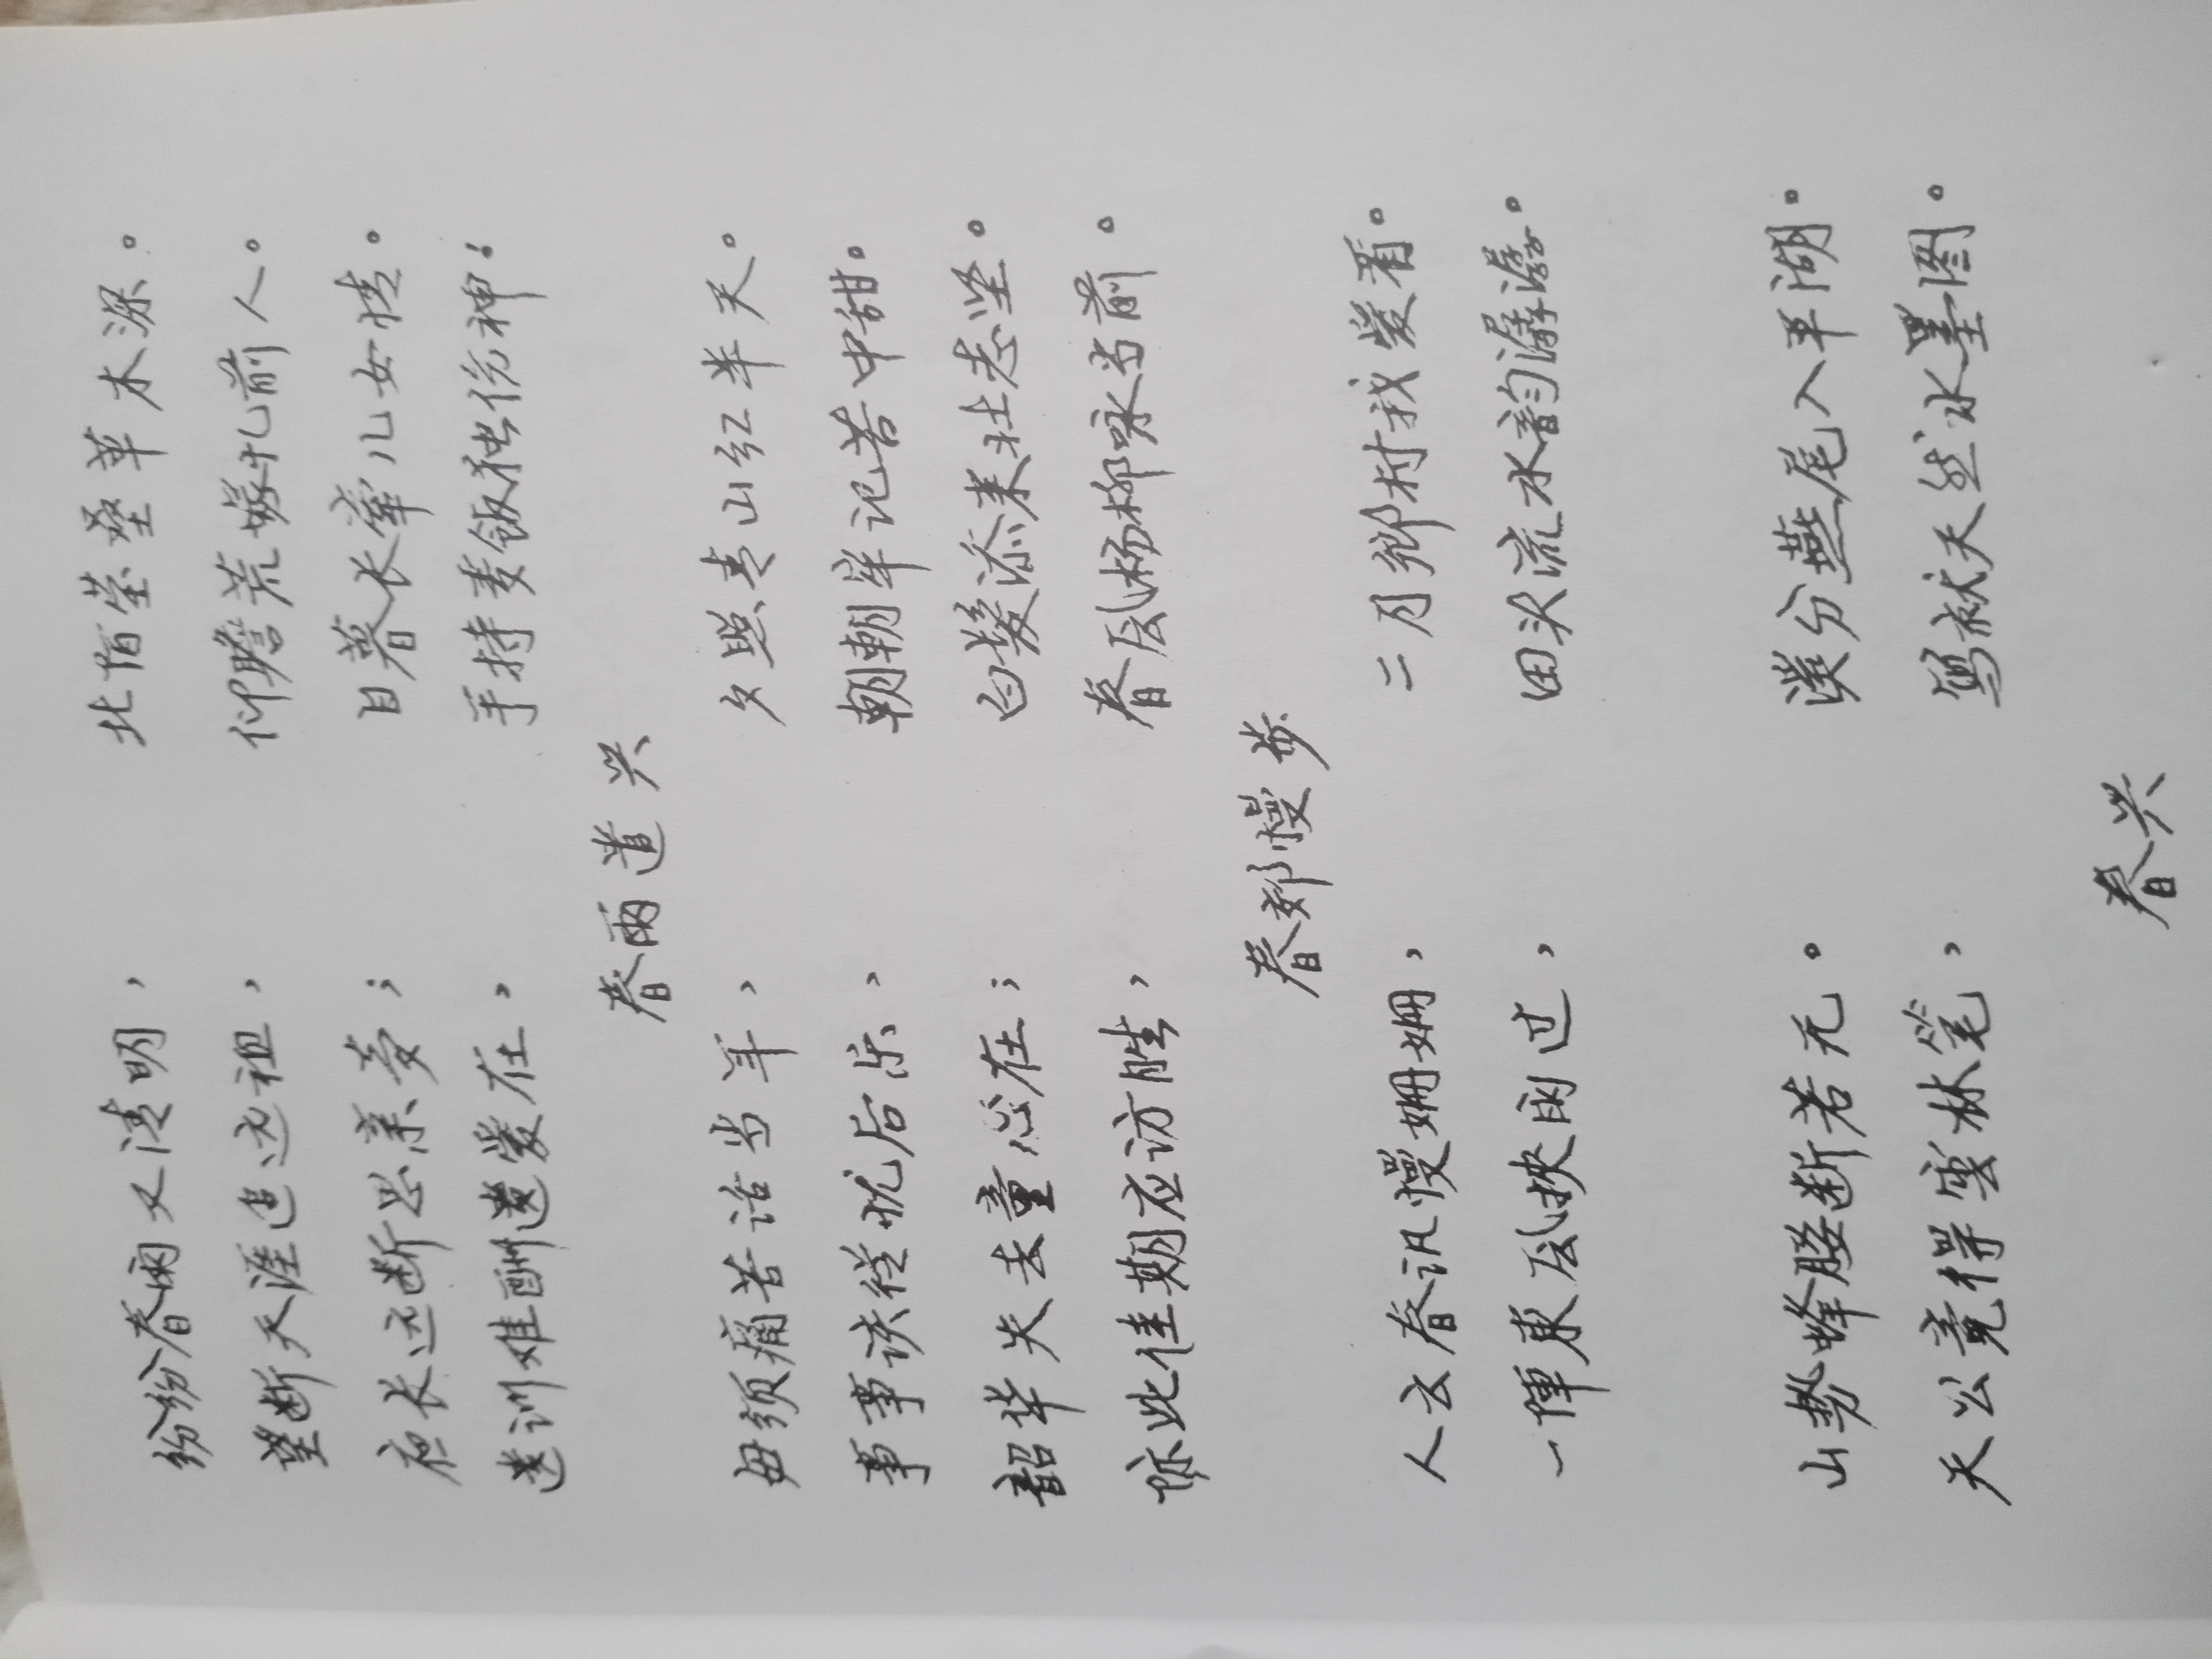 纷纷春雨又清明， 北陌茔垄草木深。
望断天涯追远祖， 仰瞻荒塚先前人。
夜长还断思亲梦； 日暮长牵儿女情。
遗训难酬遗爱在， 手持麦饭独伤神！
春雨道兴
毋须痛苦话当年， 夕照青山红半天。
事事该从忧后乐， 朝朝牢记苦中甜。
韶华失去童心在； 白髪添来壮志坚。
际此佳期应访胜， 春风杨柳咏当前。
春郊慢步
人云春讯慢姗姗， 二月鄉村我爱看。
一陣東风挾雨过， 田头流水韵潺潺。
山势蜂腰断若无。 溪分燕尾入平湖。
天公竟得雲林笔， 写就天然水墨图。
春兴